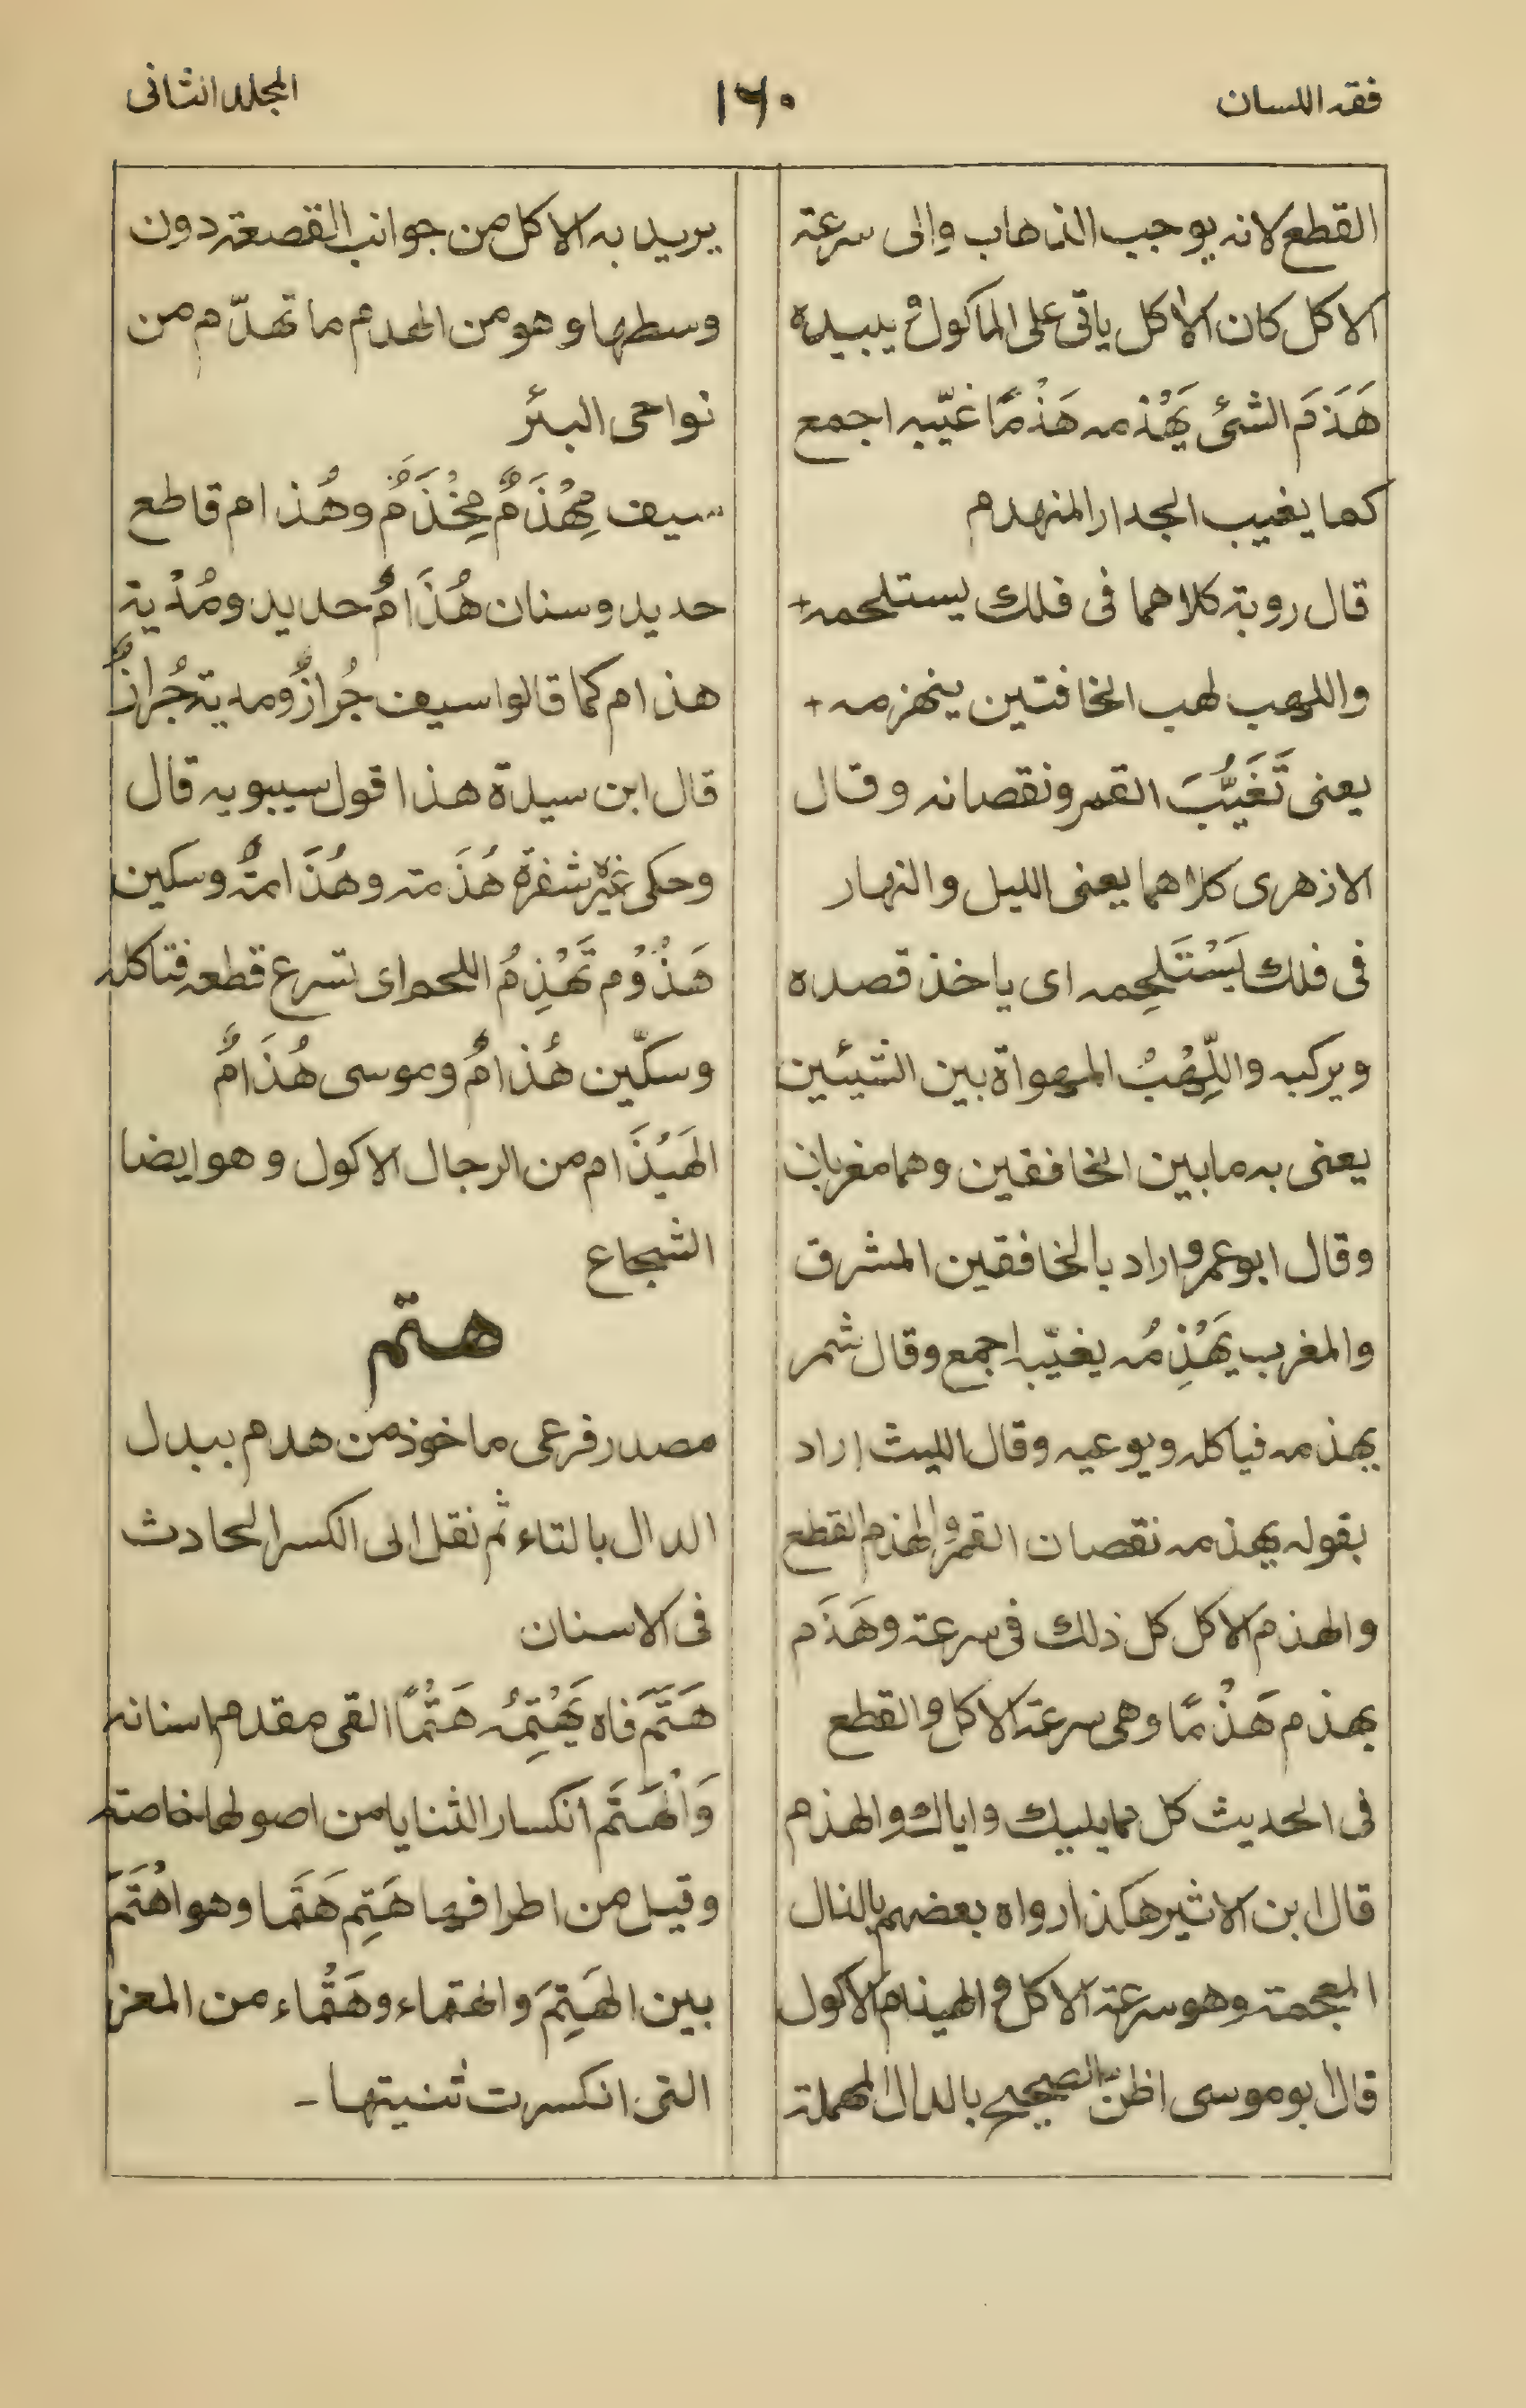 فقه اللسان
١٦٠
المجلد الثانی
القطع لانه يوجب الذهاب والی سرعة
الاكل كان الاٰكل ياتی علی الماكول و يبيده
هَذَمَ الشیٔ يَهْذمه هَذْمًا غيّبه اجمع
كما يغيب الجدار المنهدم
قال روبة كلاهما فی فلك يستلحمه +
واللهب لهب الخافتين ينهزمه +
يعنی تَغَيُّبَ القمر ونقصانه وقال
الازهری كلاهما يعنی الليل والنهار
فی فلك يَسْتَلحِمه ای ياخذ قصده
ويركبه واللِّهْبُ المهواة بين الشيئين
يعنی به مابين الخافقين وهما مغربان
وقال ابوعمرو اراد بالخافقين المشرق
والمغرب يَهْذِمُه يغيّبه اجمع وقال شمر
يهذمه فياكله ويوعيه وقال الليث اراد
بقوله يهذمه نقصان القمر والهذم القطع
والهذم الاكل كل ذلك فی سرعة وهَذَم
يهذم هَذْمًا وهی سرعة الاكل والقطع
فی الحديث كل مما يليك واياك والهذم
قال ابن الاثير هكذا رواه بعضهم بالذال
المعجمة وهو سرعة الاكل و الهيذام الاكول
قال ابوموسی اظن الصحيح بالدال المهملة
يريد به الاكل من جوانب القصعة دون
وسطها وهو من الهدم ما تهدّم من
نواحی البئر
سيف مِهْذَمٌ مِخْذَمٌ وهُذام قاطع
حديد وسنان هُذَامٌ حديد ومُدْية
هذام كما قالوا سيف جُرازٌ ومدية جُرازٌ
قال ابن سيدة هذا قول سيبويه قال
وحكی غيره شفرة هُذَمة وهُذَامةٌ وسكين
هَذُوْم تَهْذِمُ اللحم ای تسرع قطعه فتاكله
وسكّين هُذامٌ وموسی هُذَامٌ
الهَيْذَام من الرجال الاكول وهو ايضا
الشجاع
هتم
مصدر فرعی ماخوذ من هدم ببدل
الدال بالتاء ثم نقل الی الكسر الحادث
فی الاسنان
هَتَّمَ فاه يَهْتِمُه هَتْمًا القی مقدم اسنانه
وَالْهَتَم انكسار الثنايا من اصولها خاصة
وقيل من اطرافها هَتِم هَتَما وهو اهْتَمَ
بين الهَتِمَ والهتماء وهَتْماء من المعز
التی انكسرت ثنيتها -